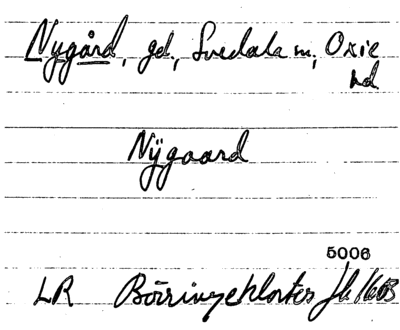 Nygård, gd, Svedala sn, Oxie
hd
Nÿgaard
5006
LR Börringeklosters Jb 1603